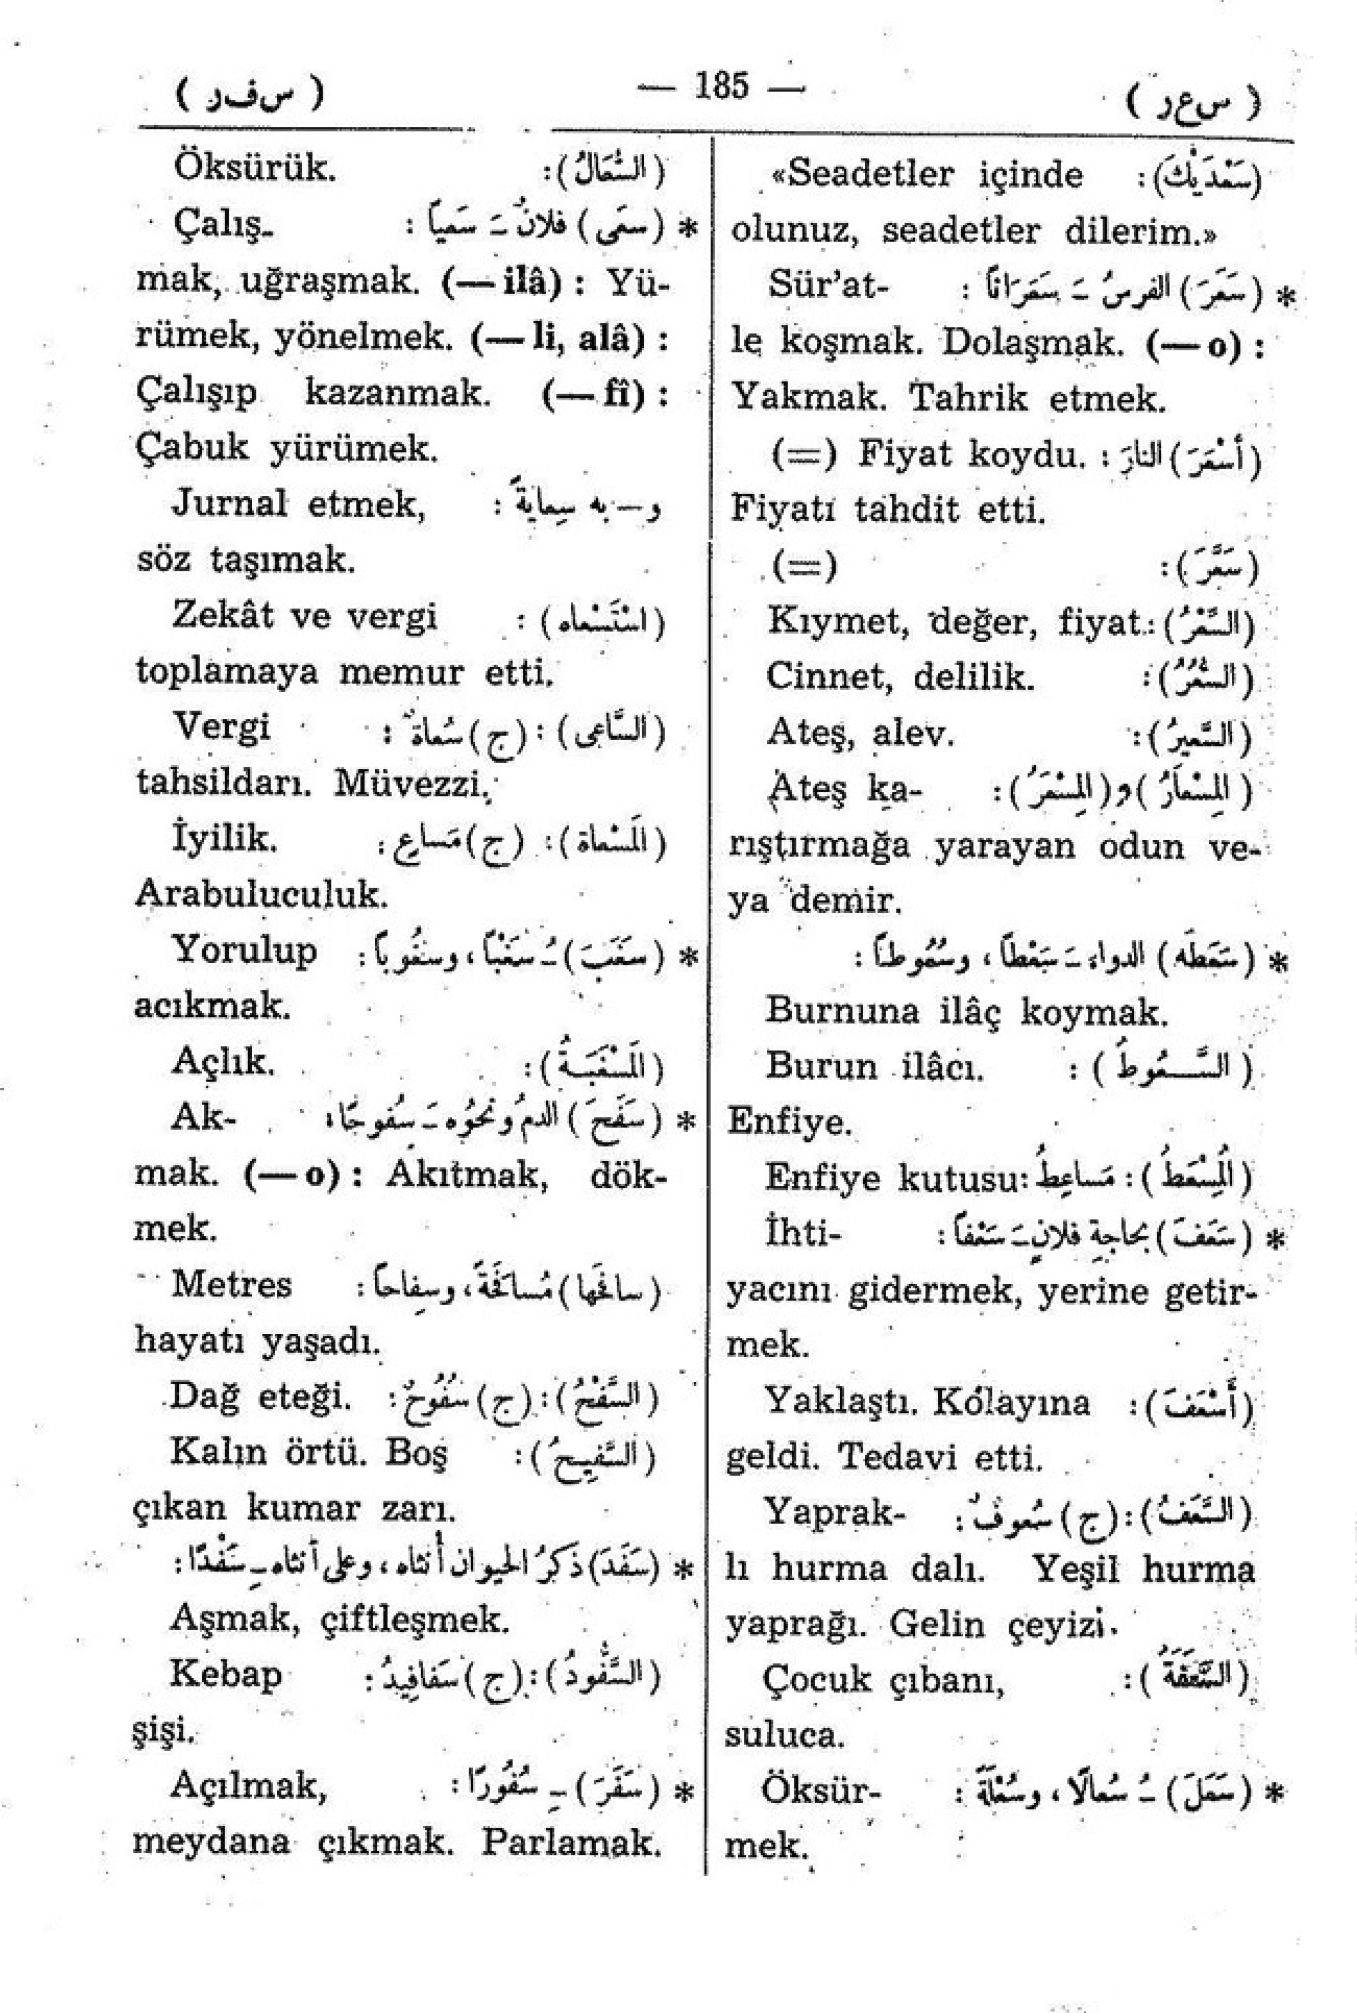 ( س ع ر ) — 185 — ( س ف ر )
(سَعْدَيْكَ): «Seadetler içinde
olunuz, seadetler dilerim.»
* (سَعَرَ) الفرسُ ـَ سَعَرَاناً : Sür'at-
le koşmak. Dolaşmak. (— o) :
Yakmak. Tahrik etmek.
(أَسْعَرَ) النارَ : (=) Fiyat koydu.
Fiyatı tahdit etti.
(سَعَّرَ): (=)
(السِّعْرُ): Kıymet, değer, fiyat.
(السُّعُرُ): Cinnet, delilik.
(السَّعِيرُ): Ateş, alev.
(المِسْعَارُ) و (المِسْعَرُ): Ateş ka-
rıştırmağa yarayan odun ve-
ya demir.
* (سَعَطَه) الدواءَ ـَ سَعْطاً ، وسُعُوطاً :
Burnuna ilâç koymak.
(السَّعُوطُ) : Burun ilâcı.
Enfiye.
(المُسْعُطُ) : مَساعِطُ : Enfiye kutusu
* (سَعَفَ) بحاجةِ فلانٍ ـَ سَعْفاً : İhti-
yacını gidermek, yerine getir-
mek.
(أَسْعَفَ): Yaklaştı. Kolayına
geldi. Tedavi etti.
(السَّعَفُ): (ج) سُعوفٌ : Yaprak-
lı hurma dalı. Yeşil hurma
yaprağı. Gelin çeyizi.
(السَّعَفَةُ): Çocuk çıbanı,
suluca.
* (سَعَلَ) ـُ سُعالًا ، وسُعْلَةً : Öksür-
mek.
(السُّعَالُ): Öksürük.
* (سعَى) فلانٌ ـَ سَعياً : Çalış-
mak, uğraşmak. (— ilâ) : Yü-
rümek, yönelmek. (— li, alâ) :
Çalışıp kazanmak. (— fî) :
Çabuk yürümek.
و— به سِعايةً : Jurnal etmek,
söz taşımak.
(اسْتَسْعاه) : Zekât ve vergi
toplamaya memur etti.
(السَّاعى) : (ج) سُعاةٌ : Vergi
tahsildarı. Müvezzi.
(المَسْعاة): (ج) مَساعٍ : İyilik.
Arabuluculuk.
* (سَغَبَ) ـُ سَغْبًا ، وسغُوباً : Yorulup
acıkmak.
(المَسْغَبَةُ): Açlık.
* (سَفَحَ) الدمُ ونحوُه ـَ سُفوحًا : Ak-
mak. (— o) : Akıtmak, dök-
mek.
(سافَحَها) مُسافَحَةً ، وسِفاحاً : Metres
hayatı yaşadı.
(السَّفْحُ): (ج) سُفُوحٌ : Dağ eteği.
(السَّفِيحُ): Kalın örtü. Boş
çıkan kumar zarı.
* (سَفَدَ) ذَكرُ الحيوان أُنثاه ، وعلى أنثاه ـِ سَفْدًا :
Aşmak, çiftleşmek.
(السَّفُّودُ): (ج) سَفافِيدُ : Kebap
şişi.
* (سَفَرَ) ـِ سُفُورًا : Açılmak,
meydana çıkmak. Parlamak.